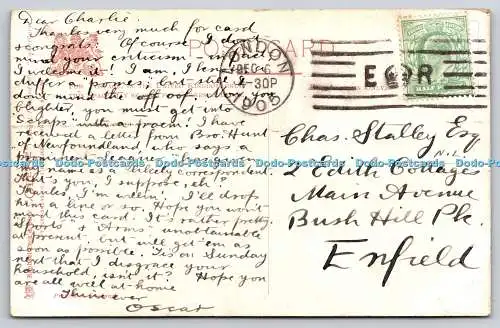 Dear Charlie,
Thanks very much for card
& congrats. Of course I don't
mind your criticism, in fact
I welcome it. I am, I hear,
a "pomes", but still I
don't mind the Off you
blighter, you must get into
"Scraps" with a
received a letter from Bro. Hunt
of Newfoundland, who says a
name as a likely correspondent
That's you, I suppose, eh?
Thanks, I'm I'll drop
him a line or so. Hope you won't
mind this card. It's rather pretty.
Sports & Arms unobtainable
at present, but will get 'em as
soon as possible. Is on Sunday
next that I disgrace your
household, isn't it? Hope you
are all well at home
Thine ever
Oscar
POST CARD
LONDON
DEC 6
4-30P
05
E R
HALF
Chas. Stalley Esq
N.L.
2 Edith Cottages
Main Avenue
Bush Hill Pk.
Enfield
Dodo-Postcards Dodo-Postcards Dodo-Postcards Dodo-Postcards